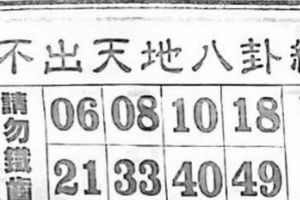 不出天地八卦
請勿鐵齒
06 08 10 18
21 33 40 49